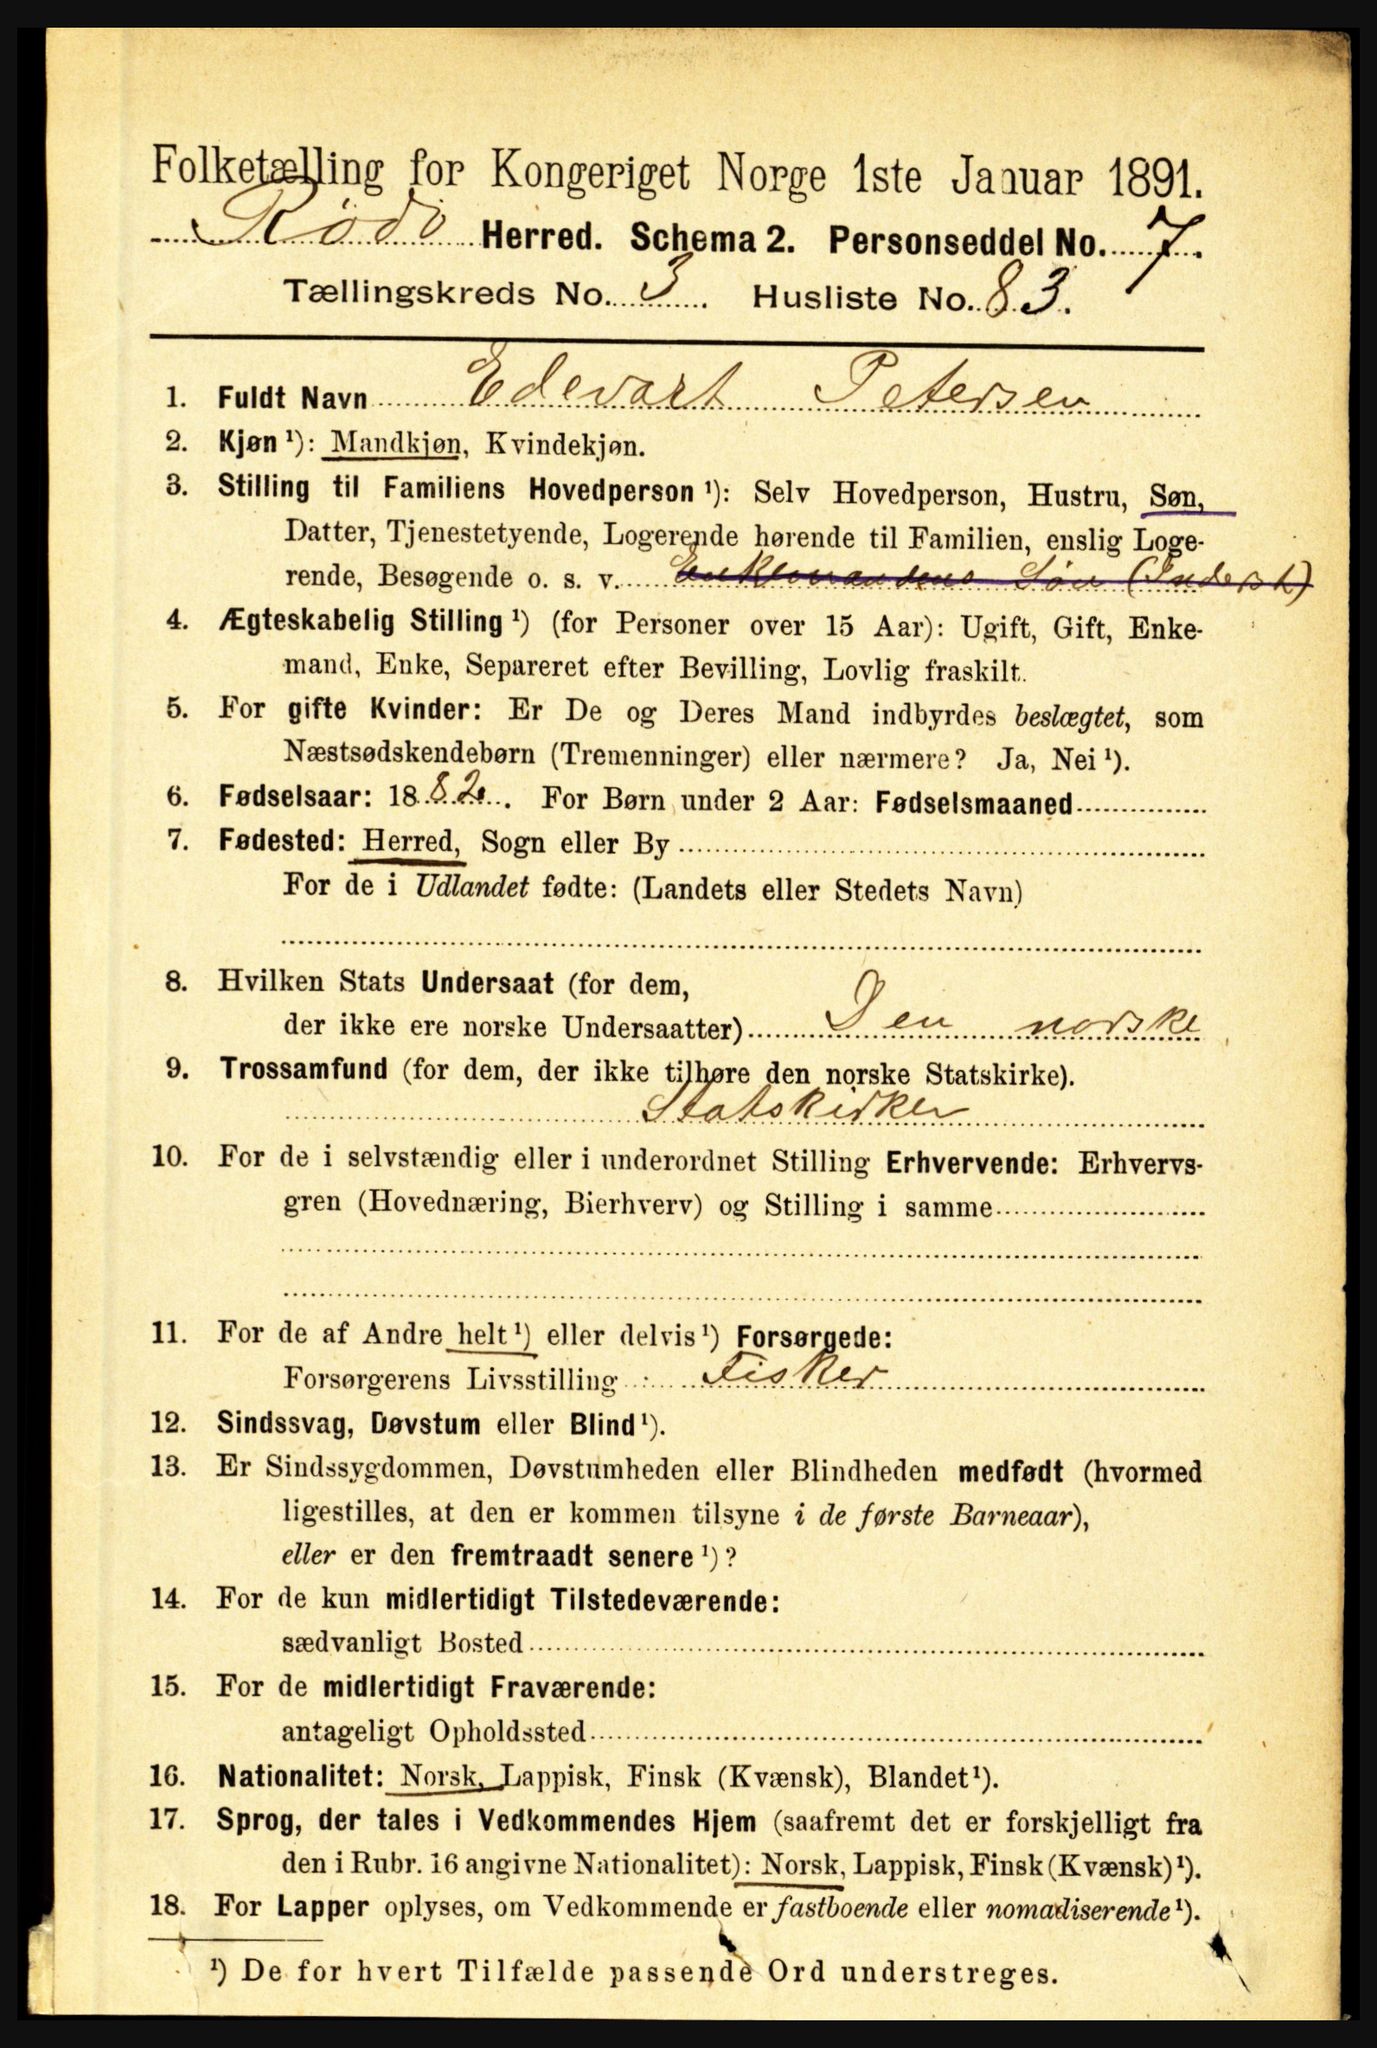 Folketælling for Kongeriget Norge 1ste Januar 1891.
Rödö Herred. Schema 2. Personseddel No. 7.
Tællingskreds No. 3. Husliste No. 83.
1. Fuldt Navn Edevart Petersen
2. Kjøn ¹): Mandkjøn, Kvindekjøn.
3. Stilling til Familiens Hovedperson ¹): Selv Hovedperson, Hustru, Søn,
Datter, Tjenestetyende, Logerende hørende til Familien, enslig Loge-
rende, Besøgende o. s. v. Enkemandens Søn (Inderst)
4. Ægteskabelig Stilling ¹) (for Personer over 15 Aar): Ugift, Gift, Enke-
mand, Enke, Separeret efter Bevilling, Lovlig fraskilt.
5. For gifte Kvinder: Er De og Deres Mand indbyrdes beslægtet, som
Næstsødskendebørn (Tremenninger) eller nærmere? Ja, Nei ¹).
6. Fødselsaar: 1882. For Børn under 2 Aar: Fødselsmaaned
7. Fødested: Herred, Sogn eller By
For de i Udlandet fødte: (Landets eller Stedets Navn)
8. Hvilken Stats Undersaat (for dem,
der ikke ere norske Undersaatter) Den norske
9. Trossamfund (for dem, der ikke tilhøre den norske Statskirke).
Statskirken
10. For de i selvstændig eller i underordnet Stilling Erhvervende: Erhvervs-
gren (Hovednæring, Bierhverv) og Stilling i samme
11. For de af Andre helt ¹) eller delvis ¹) Forsørgede:
Forsørgerens Livsstilling : Fisker
12. Sindssvag, Døvstum eller Blind ¹).
13. Er Sindssygdommen, Døvstumheden eller Blindheden medfødt (hvormed
ligestilles, at den er kommen tilsyne i de første Barneaar),
eller er den fremtraadt senere ¹)?
14. For de kun midlertidigt Tilstedeværende:
sædvanligt Bosted
15. For de midlertidigt Fraværende:
antageligt Opholdssted
16. Nationalitet: Norsk, Lappisk, Finsk (Kvænsk), Blandet ¹).
17. Sprog, der tales i Vedkommendes Hjem (saafremt det er forskjelligt fra
den i Rubr. 16 angivne Nationalitet): Norsk, Lappisk, Finsk (Kvænsk) ¹).
18. For Lapper oplyses, om Vedkommende er fastboende eller nomadiserende ¹).
¹) De for hvert Tilfælde passende Ord understreges.